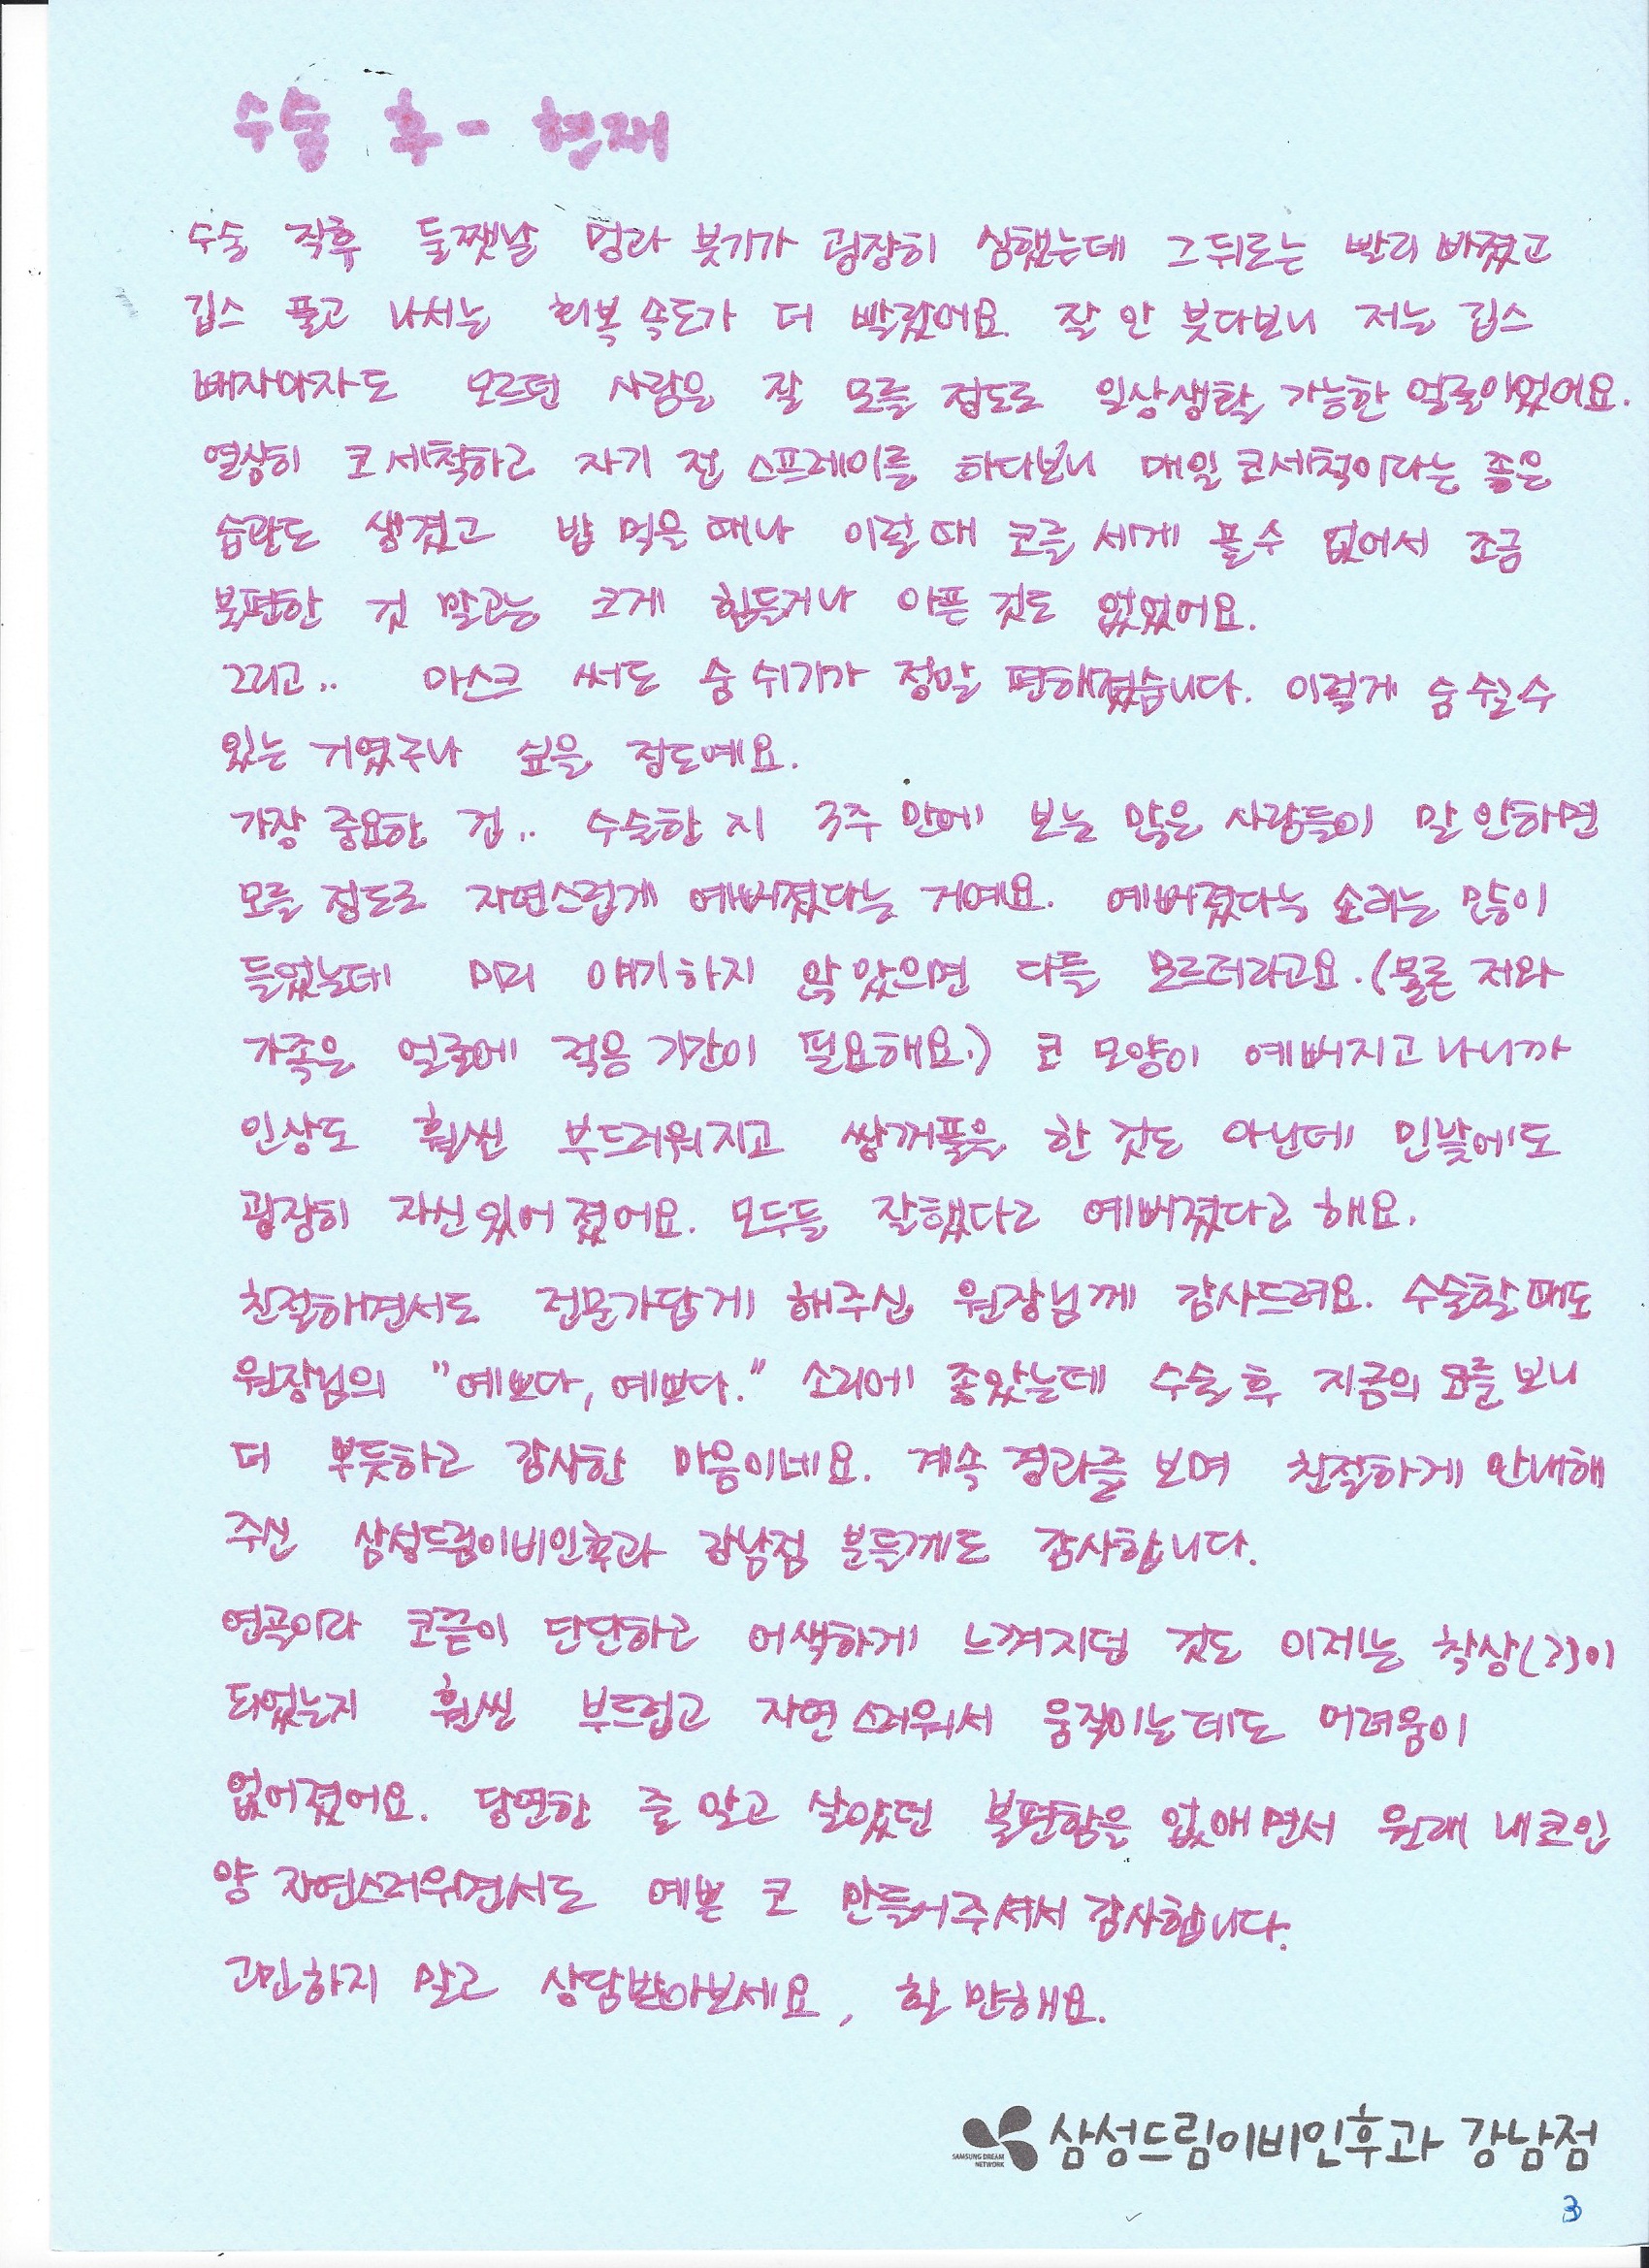 수술 후 - 현재
수술 직후 둘쨋날 멍과 붓기가 굉장히 심했는데 그 뒤로는 빨리 빠졌고
깁스 풀고 나서는 회복 속도가 더 빨랐어요. 잘 안 붓다보니 저는 깁스
빼자마자도 모르던 사람은 잘 모를 정도로 일상생활 가능한 얼굴이었어요.
열심히 코 세척하고 자기 전 스프레이를 하다보니 매일 코세척이라는 좋은
습관도 생겼고 밥 먹을 때나 이럴 때 코를 세게 풀 수 없어서 조금
불편한 것 말고는 크게 힘들거나 아픈 것도 없었어요.
그리고.. 마스크 써도 숨 쉬기가 정말 편해졌습니다. 이렇게 숨 쉴 수
있는 거였구나 싶을 정도예요.
가장 중요한 건.. 수술한 지 3주 만에 보는 많은 사람들이 말 안하면
모를 정도로 자연스럽게 예뻐졌다는 거예요. 예뻐졌다는 소리는 많이
들었는데 미리 얘기하지 않았으면 다들 모르더라고요. (물론 저와
가족은 얼굴에 적응 기간이 필요해요.) 코 모양이 예뻐지고 나니까
인상도 훨씬 부드러워지고 쌍꺼풀을 한 것도 아닌데 민낯에도
굉장히 자신있어 졌어요. 모두들 잘했다고 예뻐졌다고 해요.
친절하면서도 전문가답게 해주신 원장님께 감사드려요. 수술할 때도
원장님의 "예쁘다, 예쁘다." 소리에 좋았는데 수술 후 지금의 코를 보니
더 뿌듯하고 감사한 마음이네요. 계속 경과를 보며 친절하게 안내해
주신 삼성드림이비인후과 강남점 분들께도 감사합니다.
연골이라 코끝이 단단하고 어색하게 느껴지던 것도 이제는 착상(?)이
되었는지 훨씬 부드럽고 자연스러워서 움직이는데도 어려움이
없어졌어요. 당연한 줄 알고 살았던 불편함을 없애면서 원래 내 코인
양 자연스러우면서도 예쁜 코 만들어주셔서 감사합니다.
고민하지 말고 상담받아보세요, 할 만해요.
SAMSUNG DREAM NETWORK 삼성드림이비인후과 강남점
3